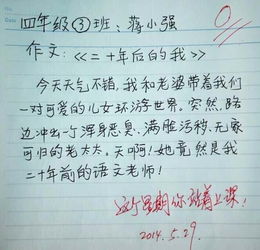 四年级③班：蒋小强
0
作文：《二十年后的我》
今天天气不错，我和老婆带着我们
一对可爱的儿女环游世界，突然，路
边冲出一个浑身恶臭、满脸污秽、无家
可归的老太太，天啊！她竟然是我
二十年前的语文老师！
这个星期你站着上课！
2014.5.29.